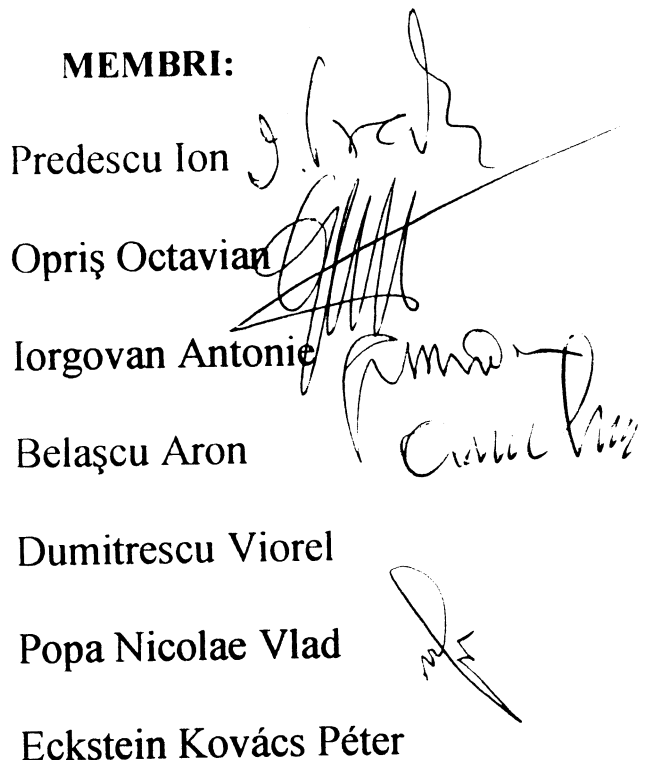 MEMBRI:
Predescu Ion
Opriş Octavian
Iorgovan Antonie
Belaşcu Aron
Dumitrescu Viorel
Popa Nicolae Vlad
Eckstein Kovács Péter